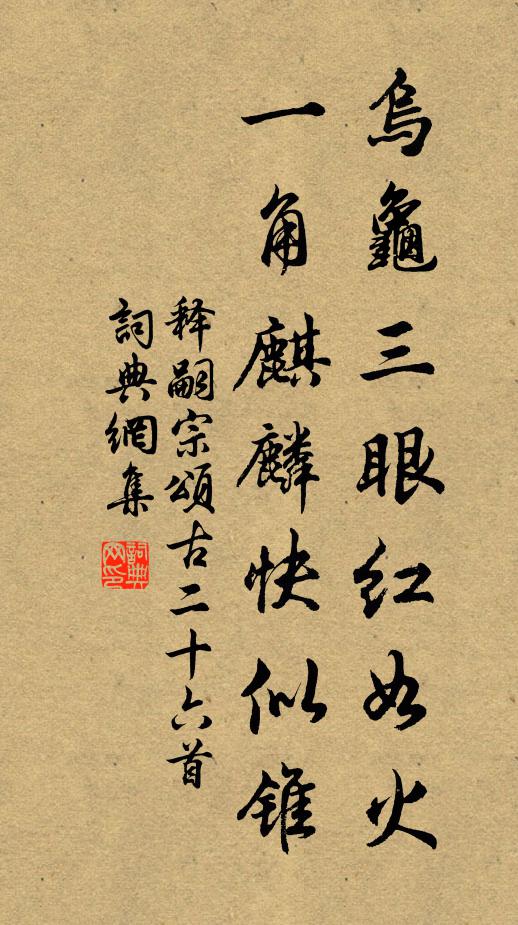 烏龜三眼红如火
一角麒麟快似錐
释嗣宗頌古二十六首
詞典網集
詞典网印